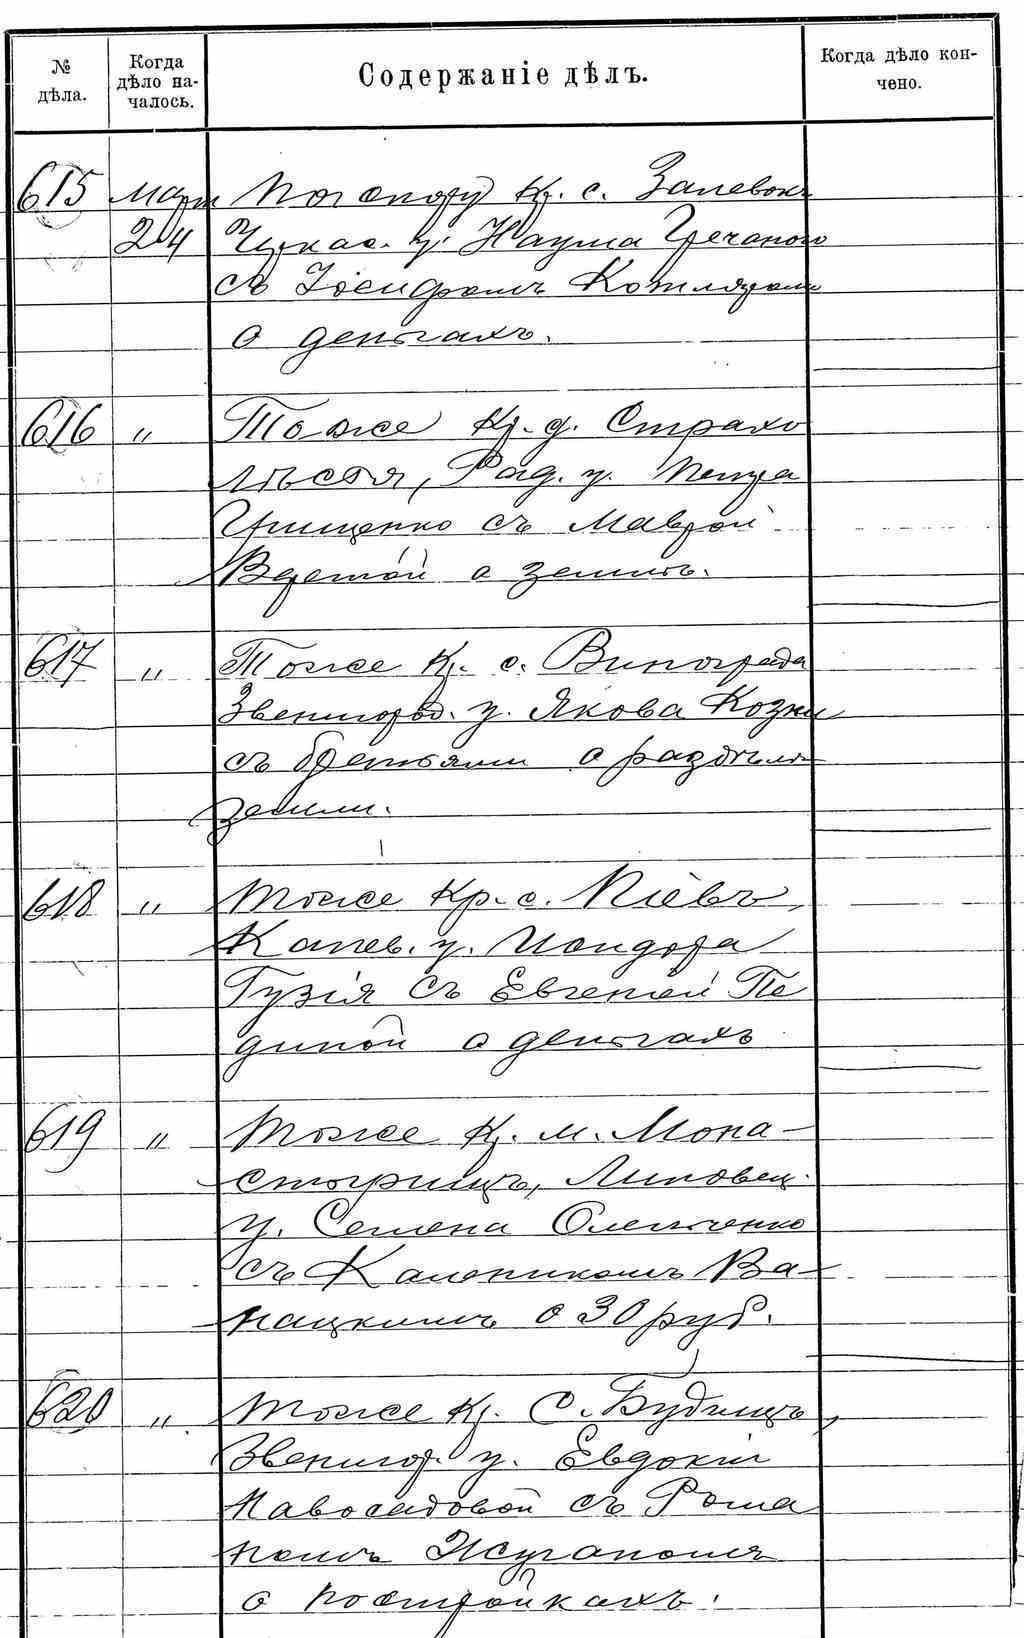 № дѣла.
Когда дѣло началось.
Содержаніе дѣлъ.
Когда дѣло кончено.
615 Март По спору Кр. с. Залевокъ
24 Черкас. у. Наума Гречаного
съ Іосифомъ Котляромъ
о деньгахъ.
616 " Тоже Кр. д. Страхо
лѣсья, Рад. у. Петра
Грищенко съ Маврой
о землѣ.
617 " Тоже Кр. с. Винограда
Звенигород. у. Якова Козки
съ братьями о раздѣлѣ
земли.
618 " Тоже Кр. с. Піевъ,
Канев. у. Исидора
Гузія съ Евгеніей Пе
диной о деньгахъ
619 " Тоже Кр. м. Мона-
стырищъ, Липовец.
у. Семена Омельченко
съ Калеником Ва-
нацкимъ о 30 руб.
620 " Тоже Кр. С. Будищъ,
Звенигор. у. Евдокіи
Навосадовой съ Рома
номъ
о постройкахъ.